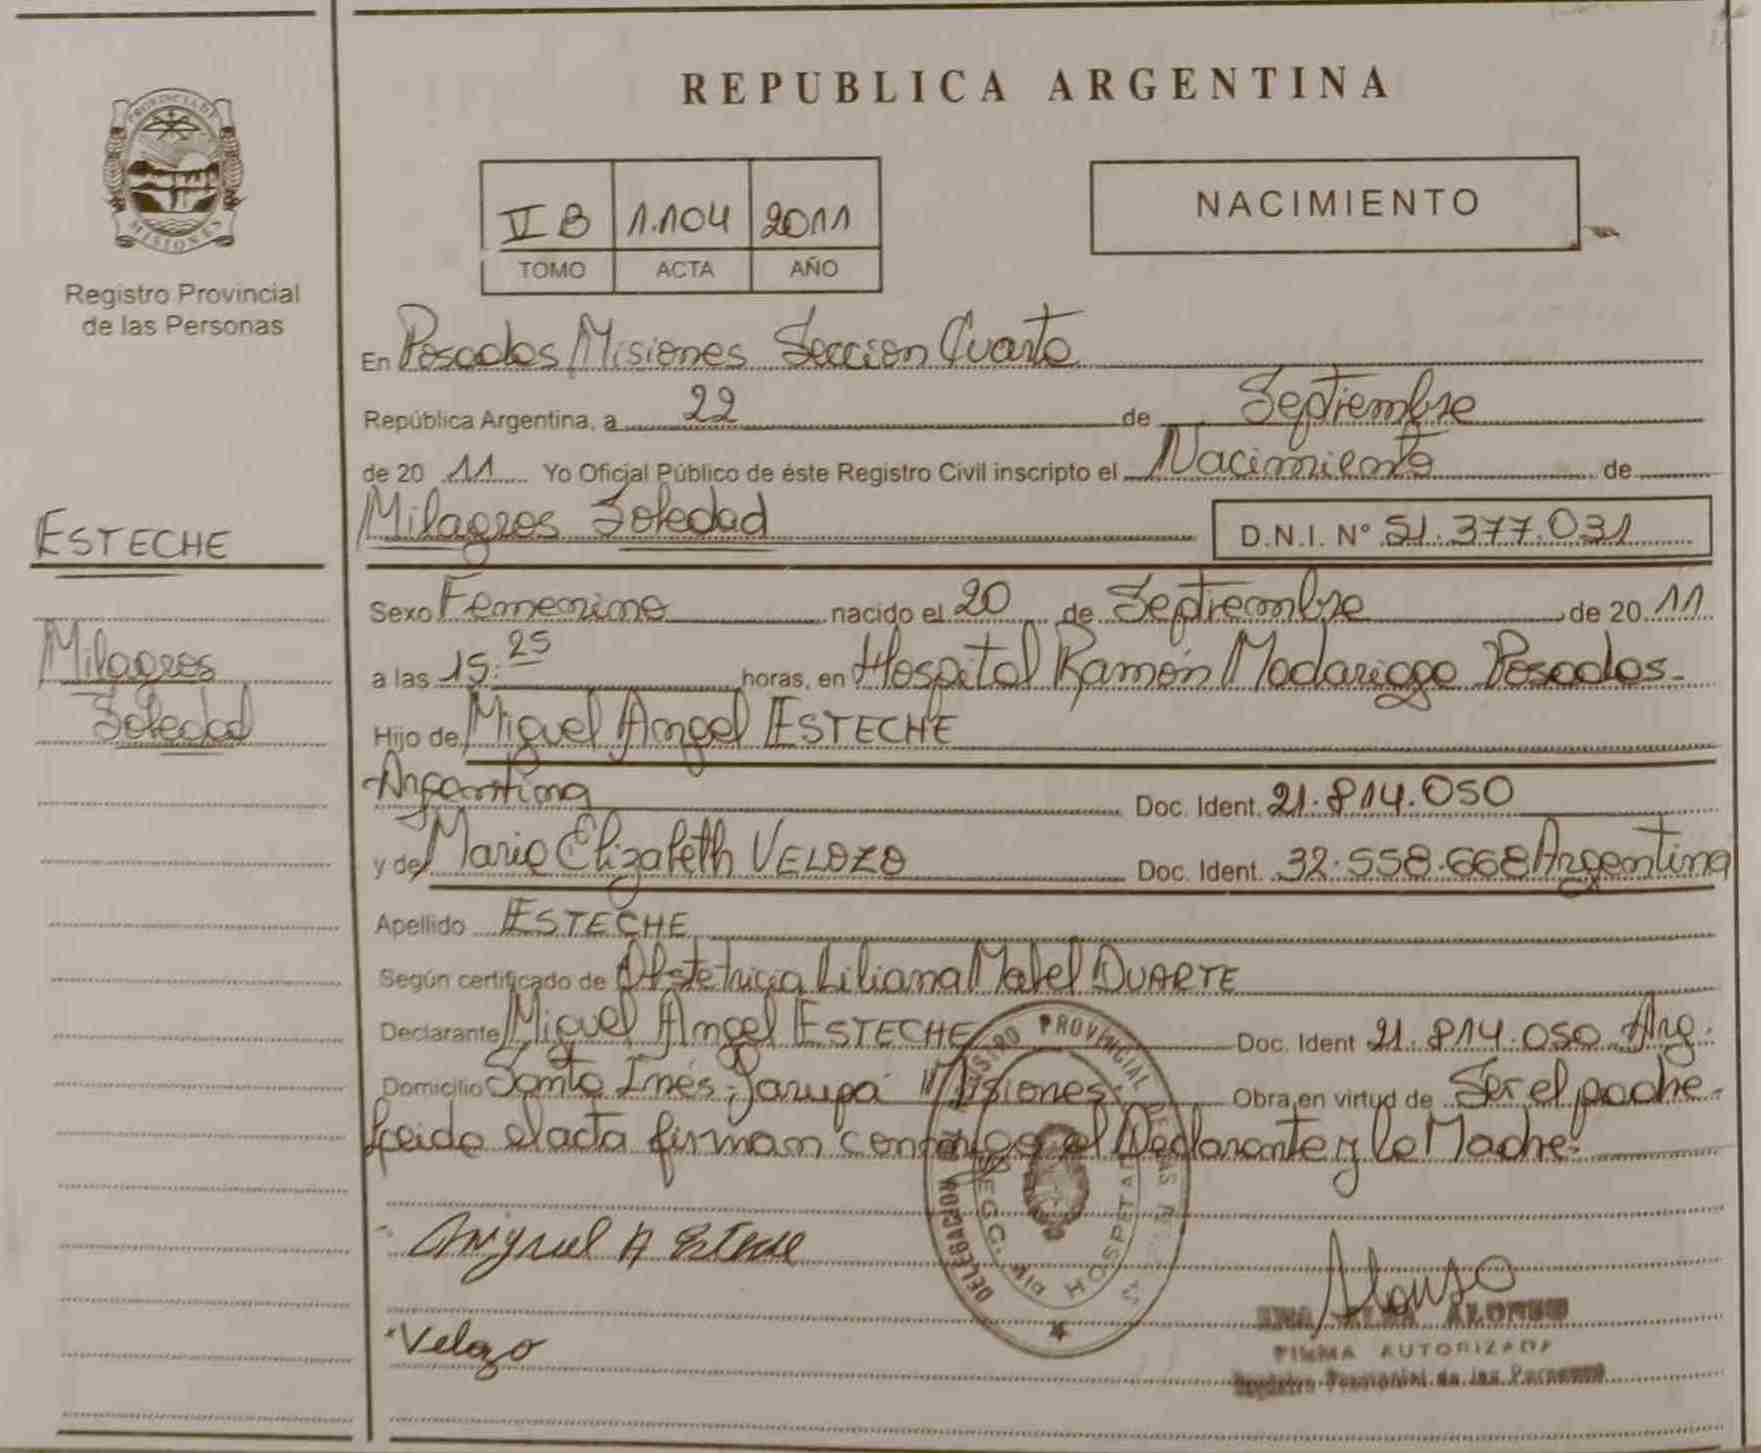 REPUBLICA ARGENTINA
PROVINCIA DE
MISIONES
Registro Provincial
de las Personas
VI B 1.104 2011
TOMO ACTA AÑO
NACIMIENTO
En Posadas Misiones Seccion Cuarta
República Argentina, a 22 de Septiembre
de 20 11 Yo Oficial Público de éste Registro Civil inscripto el Nacimiento de
Milagros Soledad D.N.I. Nº 51.377.031
ESTECHE
Milagros
Soledad
Sexo Femenino nacido el 20 de Septiembre de 20 11
a las 15:25 horas, en Hospital Ramón Madariaga Posadas-
Hijo de Miguel Angel ESTECHE
Argentina Doc. Ident. 21.814.050
y de Maria Elizabeth VELOZO Doc. Ident. 32.558.668 Argentina
Apellido ESTECHE
Según certificado de Obstetricia Liliana Mabel DUARTE
Declarante Miguel Angel ESTECHE Doc. Ident 21.814.050 Arg.
Domicilio Santa Inés, Garupá Misiones. Obra en virtud de Ser el padre.
Leida el acta firman conmigo el Declarante y la Madre.
REGISTRO PROVINCIAL DE LAS PERSONAS
DELEGACION
HOSPITAL
Miguel A Esteche
Velozo
Alonso
ALONSO
FIRMA AUTORIZADA
Registro Provincial de las Personas